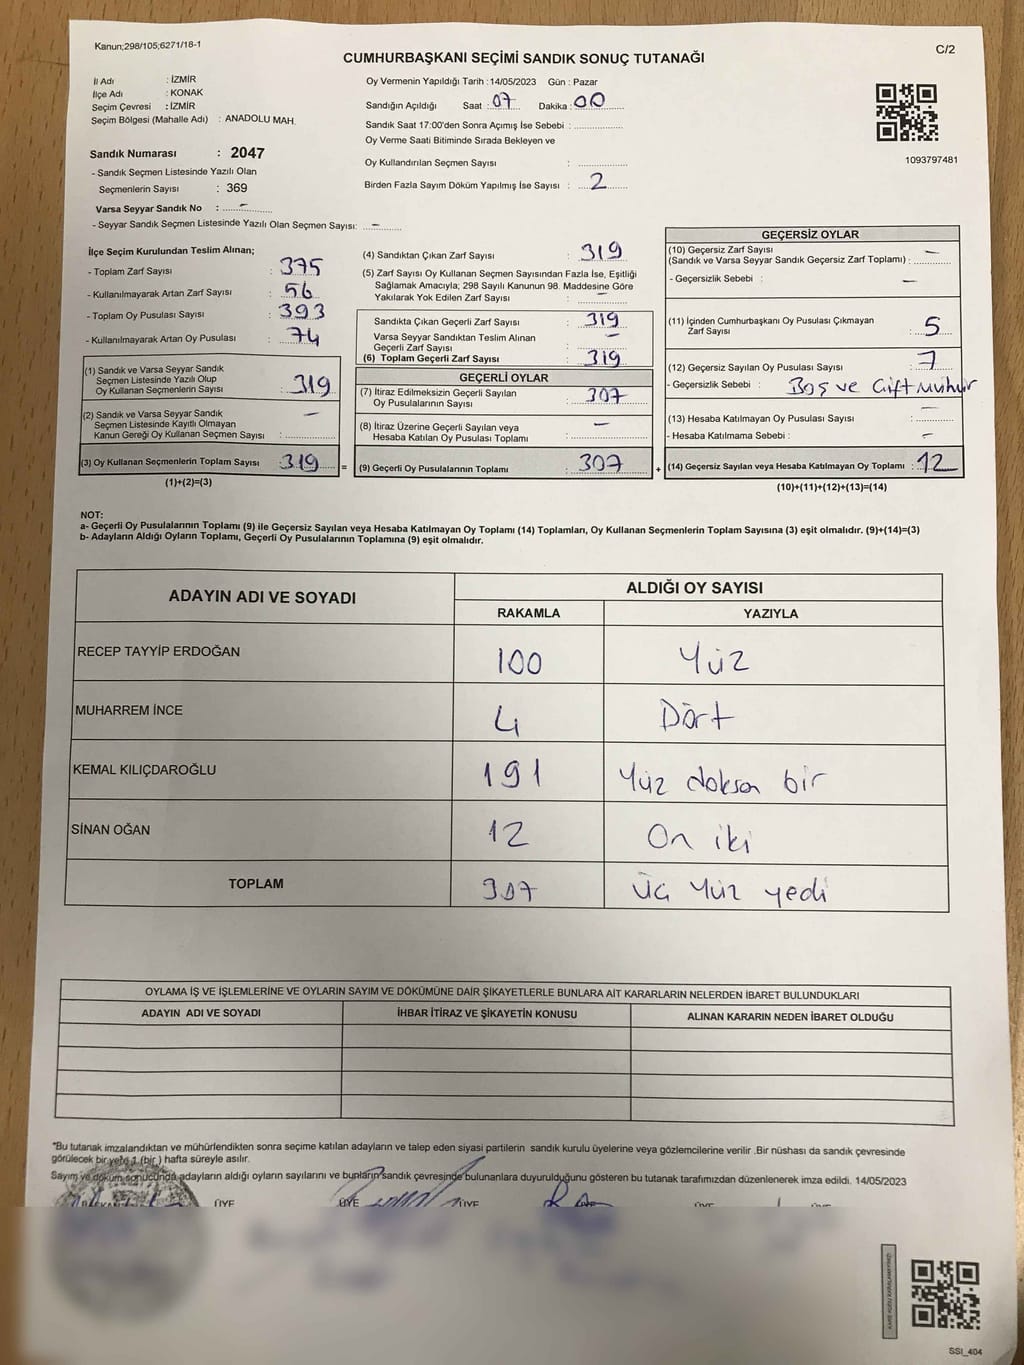 Kanun;298/105;6271/18-1
C/2
CUMHURBAŞKANI SEÇİMİ SANDIK SONUÇ TUTANAĞI
İl Adı : İZMİR
İlçe Adı : KONAK
Seçim Çevresi : İZMİR
Seçim Bölgesi (Mahalle Adı) : ANADOLU MAH.
Sandık Numarası : 2047
- Sandık Seçmen Listesinde Yazılı Olan
Seçmenlerin Sayısı : 369
Varsa Seyyar Sandık No : -
- Seyyar Sandık Seçmen Listesinde Yazılı Olan Seçmen Sayısı: -
Oy Vermenin Yapıldığı Tarih : 14/05/2023 Gün : Pazar
Sandığın Açıldığı Saat : 07 Dakika : 00
Sandık Saat 17:00'den Sonra Açımış İse Sebebi :
Oy Verme Saati Bitiminde Sırada Bekleyen ve
Oy Kullandırılan Seçmen Sayısı :
Birden Fazla Sayım Döküm Yapılmış İse Sayısı : 2
1093797481
İlçe Seçim Kurulundan Teslim Alınan;
- Toplam Zarf Sayısı : 375
- Kullanılmayarak Artan Zarf Sayısı : 56
- Toplam Oy Pusulası Sayısı : 393
- Kullanılmayarak Artan Oy Pusulası : 74
(1) Sandık ve Varsa Seyyar Sandık
Seçmen Listesinde Yazılı Olup
Oy Kullanan Seçmenlerin Sayısı : 319
(2) Sandık ve Varsa Seyyar Sandık
Seçmen Listesinde Kayıtlı Olmayan
Kanun Gereği Oy Kullanan Seçmen Sayısı : -
(3) Oy Kullanan Seçmenlerin Toplam Sayısı : 319 =
(1)+(2)=(3)
(4) Sandıktan Çıkan Zarf Sayısı : 319
(5) Zarf Sayısı Oy Kullanan Seçmen Sayısından Fazla İse, Eşitliği
Sağlamak Amacıyla; 298 Sayılı Kanunun 98. Maddesine Göre
Yakılarak Yok Edilen Zarf Sayısı : -
Sandıkta Çıkan Geçerli Zarf Sayısı : 319
Varsa Seyyar Sandıktan Teslim Alınan
Geçerli Zarf Sayısı : -
(6) Toplam Geçerli Zarf Sayısı : 319
GEÇERLİ OYLAR
(7) İtiraz Edilmeksizin Geçerli Sayılan
Oy Pusulalarının Sayısı : 307
(8) İtiraz Üzerine Geçerli Sayılan veya
Hesaba Katılan Oy Pusulası Toplamı : -
(9) Geçerli Oy Pusulalarının Toplamı : 307 +
GEÇERSİZ OYLAR
(10) Geçersiz Zarf Sayısı
(Sandık ve Varsa Seyyar Sandık Geçersiz Zarf Toplamı) : -
- Geçersizlik Sebebi : -
(11) İçinden Cumhurbaşkanı Oy Pusulası Çıkmayan
Zarf Sayısı : 5
(12) Geçersiz Sayılan Oy Pusulası Sayısı : 7
- Geçersizlik Sebebi : Boş ve Çift Mühür
(13) Hesaba Katılmayan Oy Pusulası Sayısı : -
- Hesaba Katılmama Sebebi : -
(14) Geçersiz Sayılan veya Hesaba Katılmayan Oy Toplamı : 12
(10)+(11)+(12)+(13)=(14)
NOT:
a- Geçerli Oy Pusulalarının Toplamı (9) ile Geçersiz Sayılan veya Hesaba Katılmayan Oy Toplamı (14) Toplamları, Oy Kullanan Seçmenlerin Toplam Sayısına (3) eşit olmalıdır. (9)+(14)=(3)
b- Adayların Aldığı Oyların Toplamı, Geçerli Oy Pusulalarının Toplamına (9) eşit olmalıdır.
ADAYIN ADI VE SOYADI ALDIĞI OY SAYISI
RAKAMLA YAZIYLA
RECEP TAYYİP ERDOĞAN 100 Yüz
MUHARREM İNCE 4 Dört
KEMAL KILIÇDAROĞLU 191 Yüz doksan bir
SİNAN OĞAN 12 On iki
TOPLAM 307 Üç Yüz yedi
OYLAMA İŞ VE İŞLEMLERİNE VE OYLARIN SAYIM VE DÖKÜMÜNE DAİR ŞİKAYETLERLE BUNLARA AİT KARARLARIN NELERDEN İBARET BULUNDUKLARI
ADAYIN ADI VE SOYADI İHBAR İTİRAZ VE ŞİKAYETİN KONUSU ALINAN KARARIN NEDEN İBARET OLDUĞU
*Bu tutanak imzalandıktan ve mühürlendikten sonra seçime katılan adayların ve talep eden siyasi partilerin sandık kurulu üyelerine veya gözlemcilerine verilir .Bir nüshası da sandık çevresinde
görülecek bir yere 1 (bir ) hafta süreyle asılır.
Sayım ve döküm sonucunda adayların aldığı oyların sayılarını ve bunların sandık çevresinde bulunanlara duyurulduğunu gösteren bu tutanak tarafımızdan düzenlenerek imza edildi. 14/05/2023
BAŞKAN ÜYE ÜYE ÜYE ÜYE ÜYE ÜYE
SSI_404